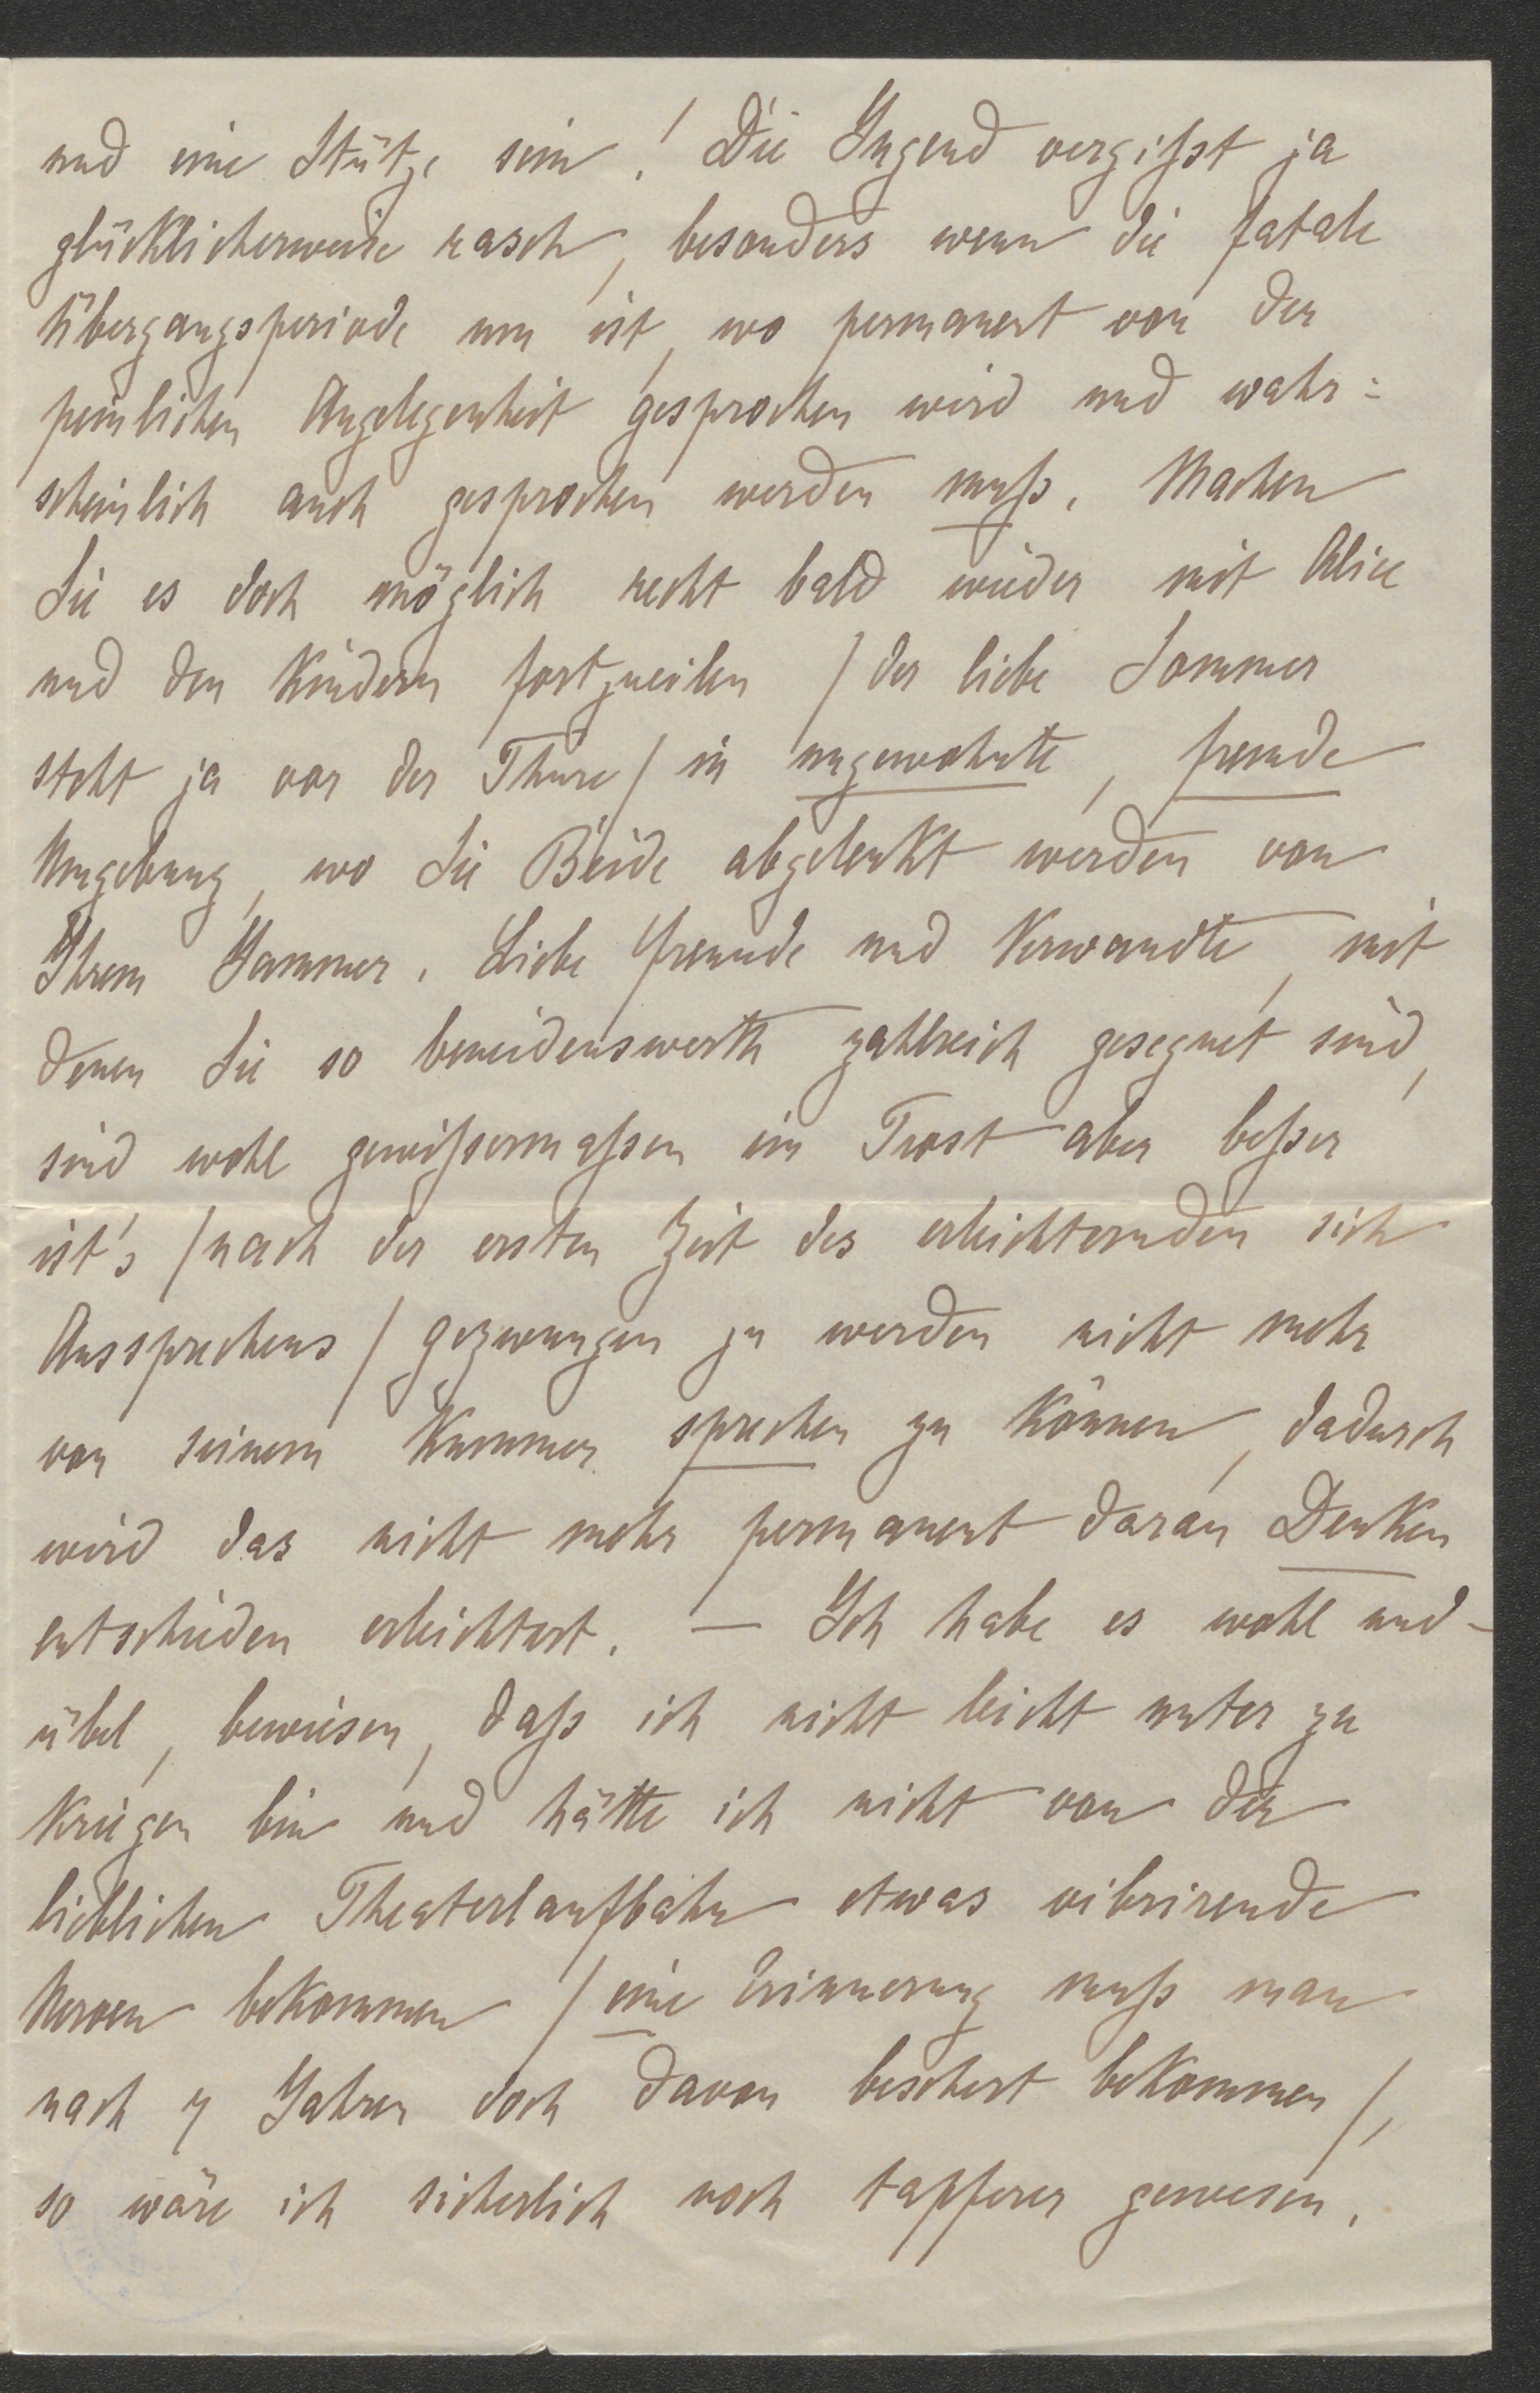 und eine Stütze sein! Die Jugend vergißt ja
glücklicherweise rasch, besonders wenn die fatale
Übergangsperiode um ist, wo permanent von der
peinlichen Angelegenheit gesprochen wird und wahr=
scheinlich auch gesprochen werden muß. Machen
Sie es doch möglich recht bald wieder mit Alice
und den Kindern fortzueilen / der liebe Sommer
steht ja vor der Thüre / in ungewohnte, fremde
Umgebung, wo Sie Beide abgelenkt werden von
Ihrem Jammer. Liebe Freunde und Verwandte, mit
denen Sie so beneidenswerth zahlreich gesegnet sind,
sind wohl gewißermaßen ein Trost aber beßer
ist's / nach der ersten Zeit des erleichternden sich
Aussprechens / gezwungen zu werden nicht mehr
von seinem Kummer sprechen zu können, dadurch
wird das nicht mehr permanent daran Denken
entschieden erleichtert. — Ich habe es wohl und-
übel, bewiesen, daß ich nicht leicht unter zu
kriegen bin und hätte ich nicht von der
lieblichen Theaterlaufbahn etwas vibrirende
Nerven bekommen / eine Erinnerung muß man
nach 7 Jahren doch davon beschert bekommen /,
so wäre ich sicherlich noch tapferer gewesen.